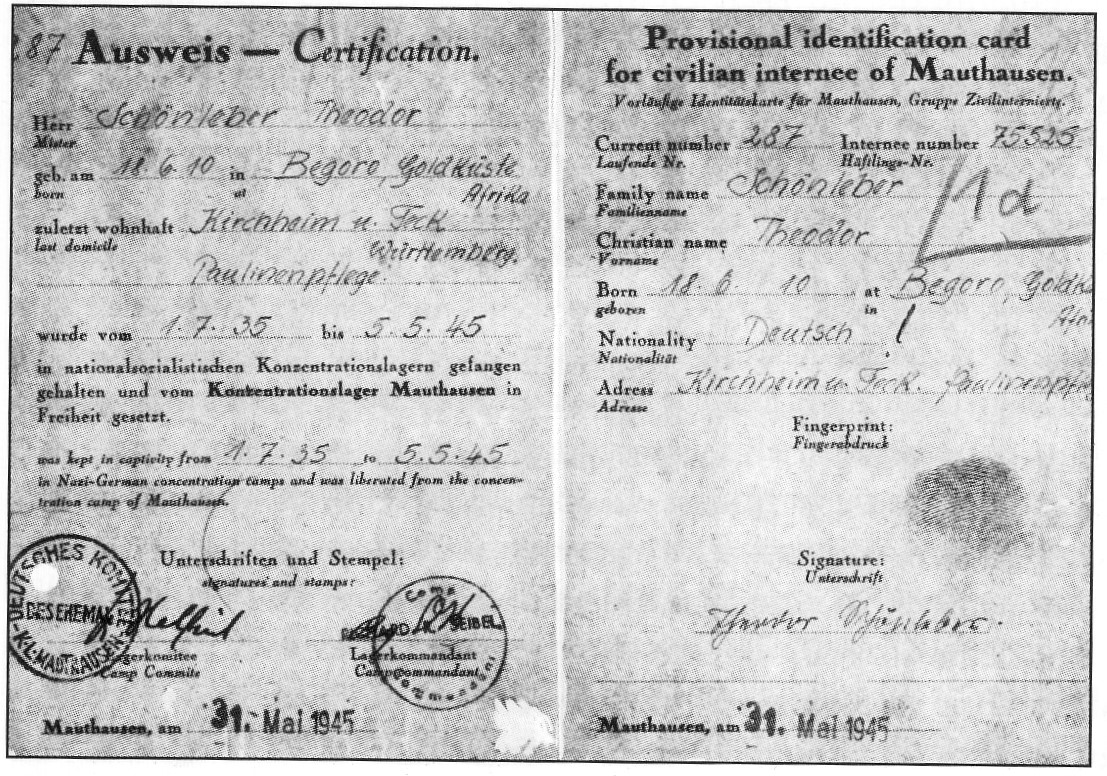 287 Ausweis — Certification.
Herr Schönleber Theodor
Mister
geb. am 18.6.10 in Begoro, Goldküste
born at Afrika
zuletzt wohnhaft Kirchheim u. Teck
last domicile Württemberg.
Paulinenpflege.
wurde vom 1.7.35 bis 5.5.45
in nationalsozialistischen Konzentrationslagern gefangen
gehalten und vom Konzentrationslager Mauthausen in
Freiheit gesetzt.
was kept in captivity from 1.7.35 to 5.5.45
in Nazi-German concentration camps and was liberated from the concen-
tration camp of Mauthausen.
Unterschriften und Stempel:
signatures and stamps:
DEUTSCHES KOMITEE
DES EHEMAL
K.L-MAUTHAUSEN
Camp
EIBEL
Commandant
Lagerkomitee Lagerkommandant
Camp Commite Campcommandant
Mauthausen, am 31. Mai 1945
Provisional identification card
for civilian internee of Mauthausen.
Vorläufige Identitätskarte für Mauthausen, Gruppe Zivilinternierte.
Current number 287 Internee number 75525
Laufende Nr. Häftlings-Nr.
Family name Schönleber
Familienname
Christian name Theodor
Vorname
Born 18.6. 10 at Begoro, Goldk
geboren in Afri
Nationality Deutsch
Nationalität
Adress Kirchheim u. Teck. Paulinenpfleg
Adresse
Fingerprint:
Fingerabdruck
Signature:
Unterschrift
Theodor Schönleber.
Mauthausen, am 31. Mai 1945